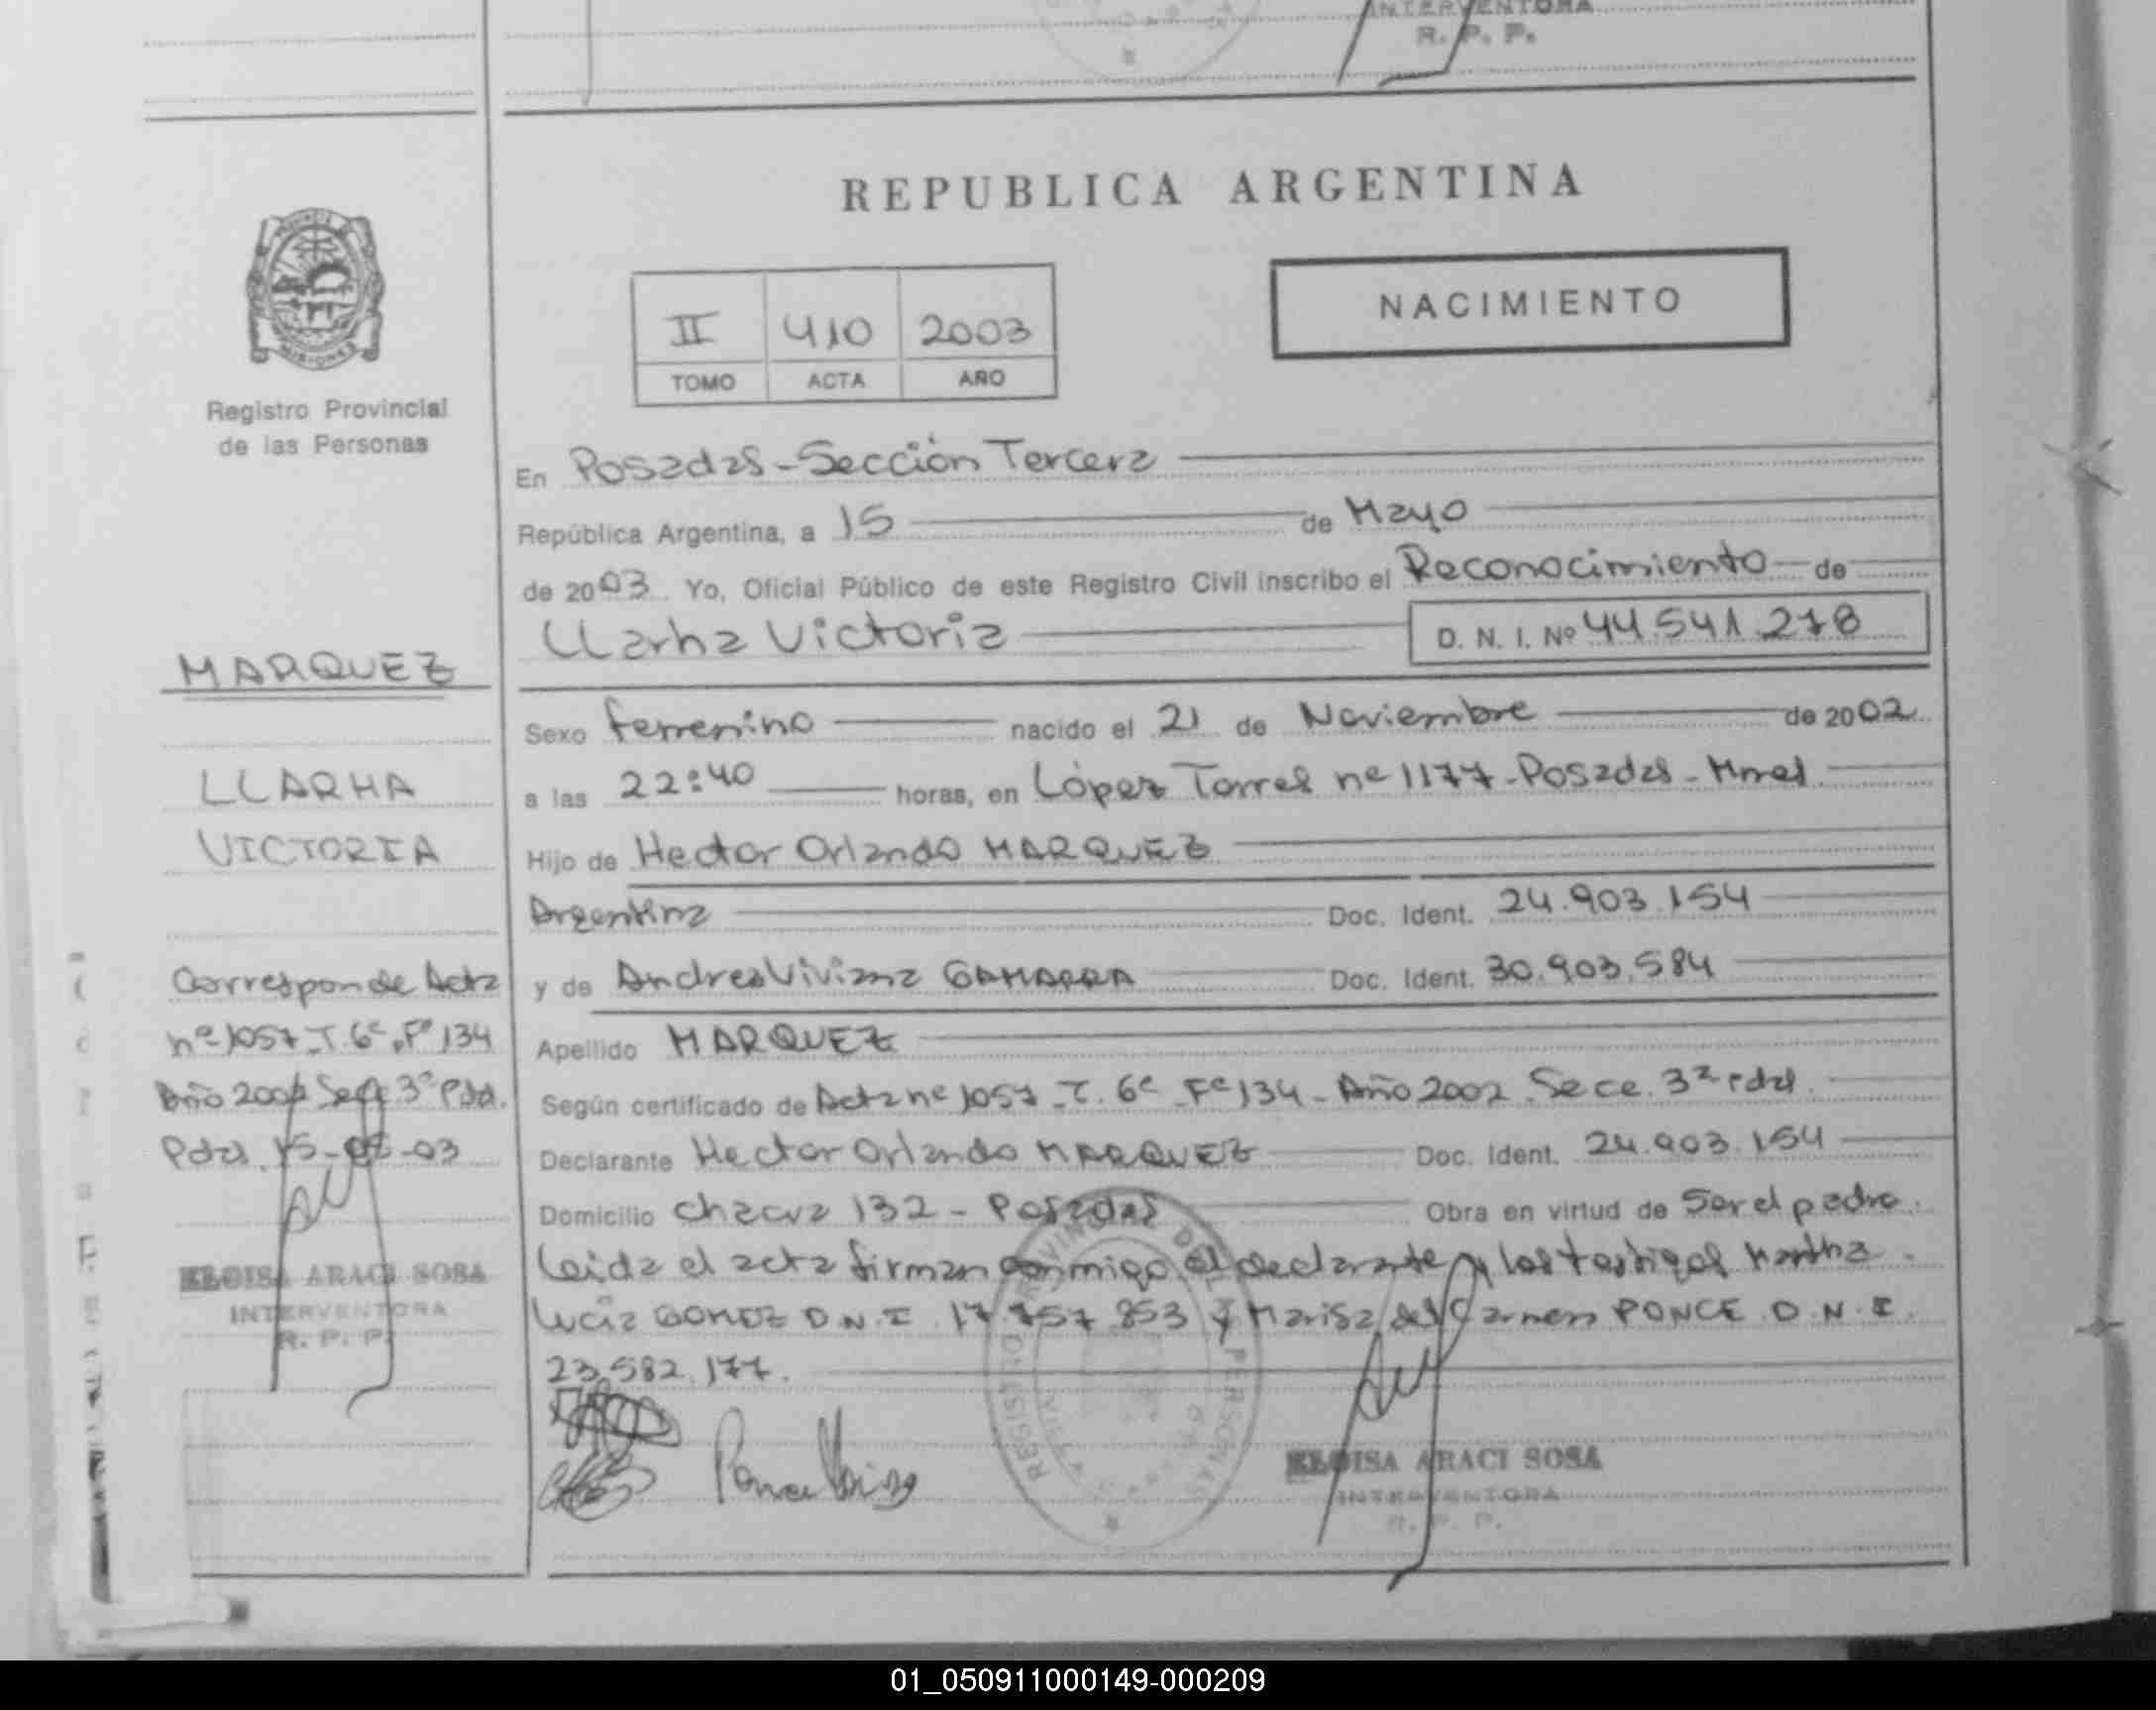 INTERVENTORA
R. P. P.
REPUBLICA ARGENTINA
NACIMIENTO
II 410 2003
TOMO ACTA AÑO
MISIONES
Registro Provincial
de las Personas
En Posadas - Sección Tercera
República Argentina, a 15 de Mayo
de 2003 Yo, Oficial Público de este Registro Civil inscribo el Reconocimiento de
Llarha Victoria D. N. I. Nº 44.541.278
MARQUEZ
Sexo femenino nacido el 21 de Noviembre de 2002
LLARHA
a las 22:40 horas, en López Torres nº 1177 - Posadas - Mnes.
VICTORIA
Hijo de Hector Orlando MARQUEZ
Argentina Doc. Ident. 24.903.154
Corresponde Acta
y de Andrea Viviana GAMARRA Doc. Ident. 30.903.584
nº 1057 - T. 6º, Fº 134
Apellido MARQUEZ
Año 2002 Secc 3º Pdas.
Según certificado de Acta nº 1057 - T. 6º - Fº 134 - Año 2002 - Secc. 3ª Pdas.
Pdas, 15-05-03
Declarante Hector Orlando MARQUEZ Doc. Ident. 24.903.154
Domicilio Chacra 132 - Posadas Obra en virtud de Ser el padre.
Leida el acta firman conmigo el declarante y los testigos Martha
ELOISA ARACI SOSA
INTERVENTORA
R. P. P.
Lucia GOMEZ D.N.I. 17.757.853 y Marisa del Carmen PONCE D.N.I.
23.582.177.
Ponce Marisa
REGISTRO PROVINCIAL DE LAS PERSONAS
ELOISA ARACI SOSA
INTERVENTORA
R. P. P.
01_050911000149-000209